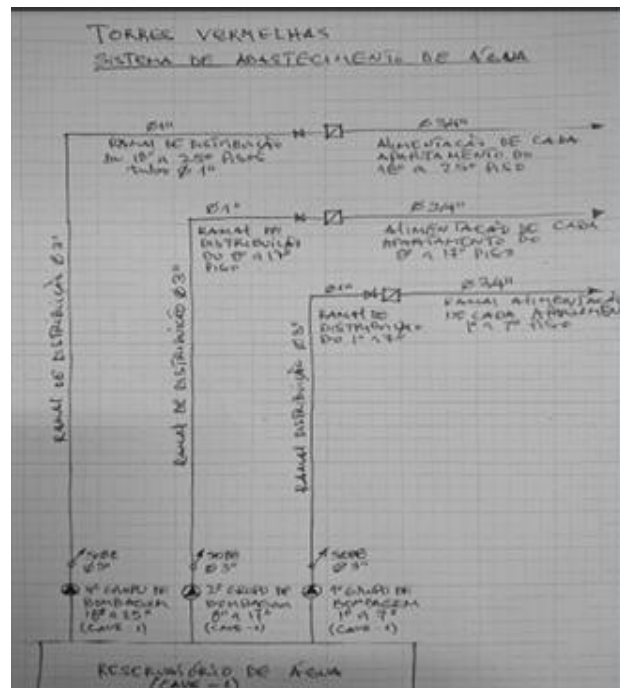 TORRES VERMELHAS
SISTEMA DE ABASTECIMENTO DE ÁGUA
Ø1"
RAMAL DE DISTRIBUIÇÃO
DO 18º A 25º PISOS
tubos Ø 1"
Ø3/4"
ALIMENTAÇÃO DE CADA
APARTAMENTO DO
18º A 25º PISO
Ø1"
RAMAL DE
DISTRIBUIÇÃO
DO 8º A 17º
PISO
Ø3/4"
ALIMENTAÇÃO DE CADA
APARTAMENTO DO
8º A 17º PISO
Ø1"
RAMAL DE
DISTRIBUIÇÃO
DO 1º A 7º
Ø3/4"
RAMAL ALIMENTAÇÃO
DE CADA APARTAMEN
1º A 7º PISO
RAMAL DE DISTRIBUIÇÃO Ø3"
RAMAL DE DISTRIBUIÇÃO Ø3"
RAMAL DISTRIBUIÇÃO Ø3"
SOBE
Ø3"
SOBE
Ø3"
SOBE
Ø3"
GRUPO DE
BOMBAGEM
18º A 25º
(CAVE -1)
2º GRUPO DE
BOMBAGEM
8º A 17º
(CAVE -1)
1º GRUPO DE
BOMBAGEM
1º A 7º
(CAVE -1)
RESERVATÓRIO DE ÁGUA
(CAVE -1)